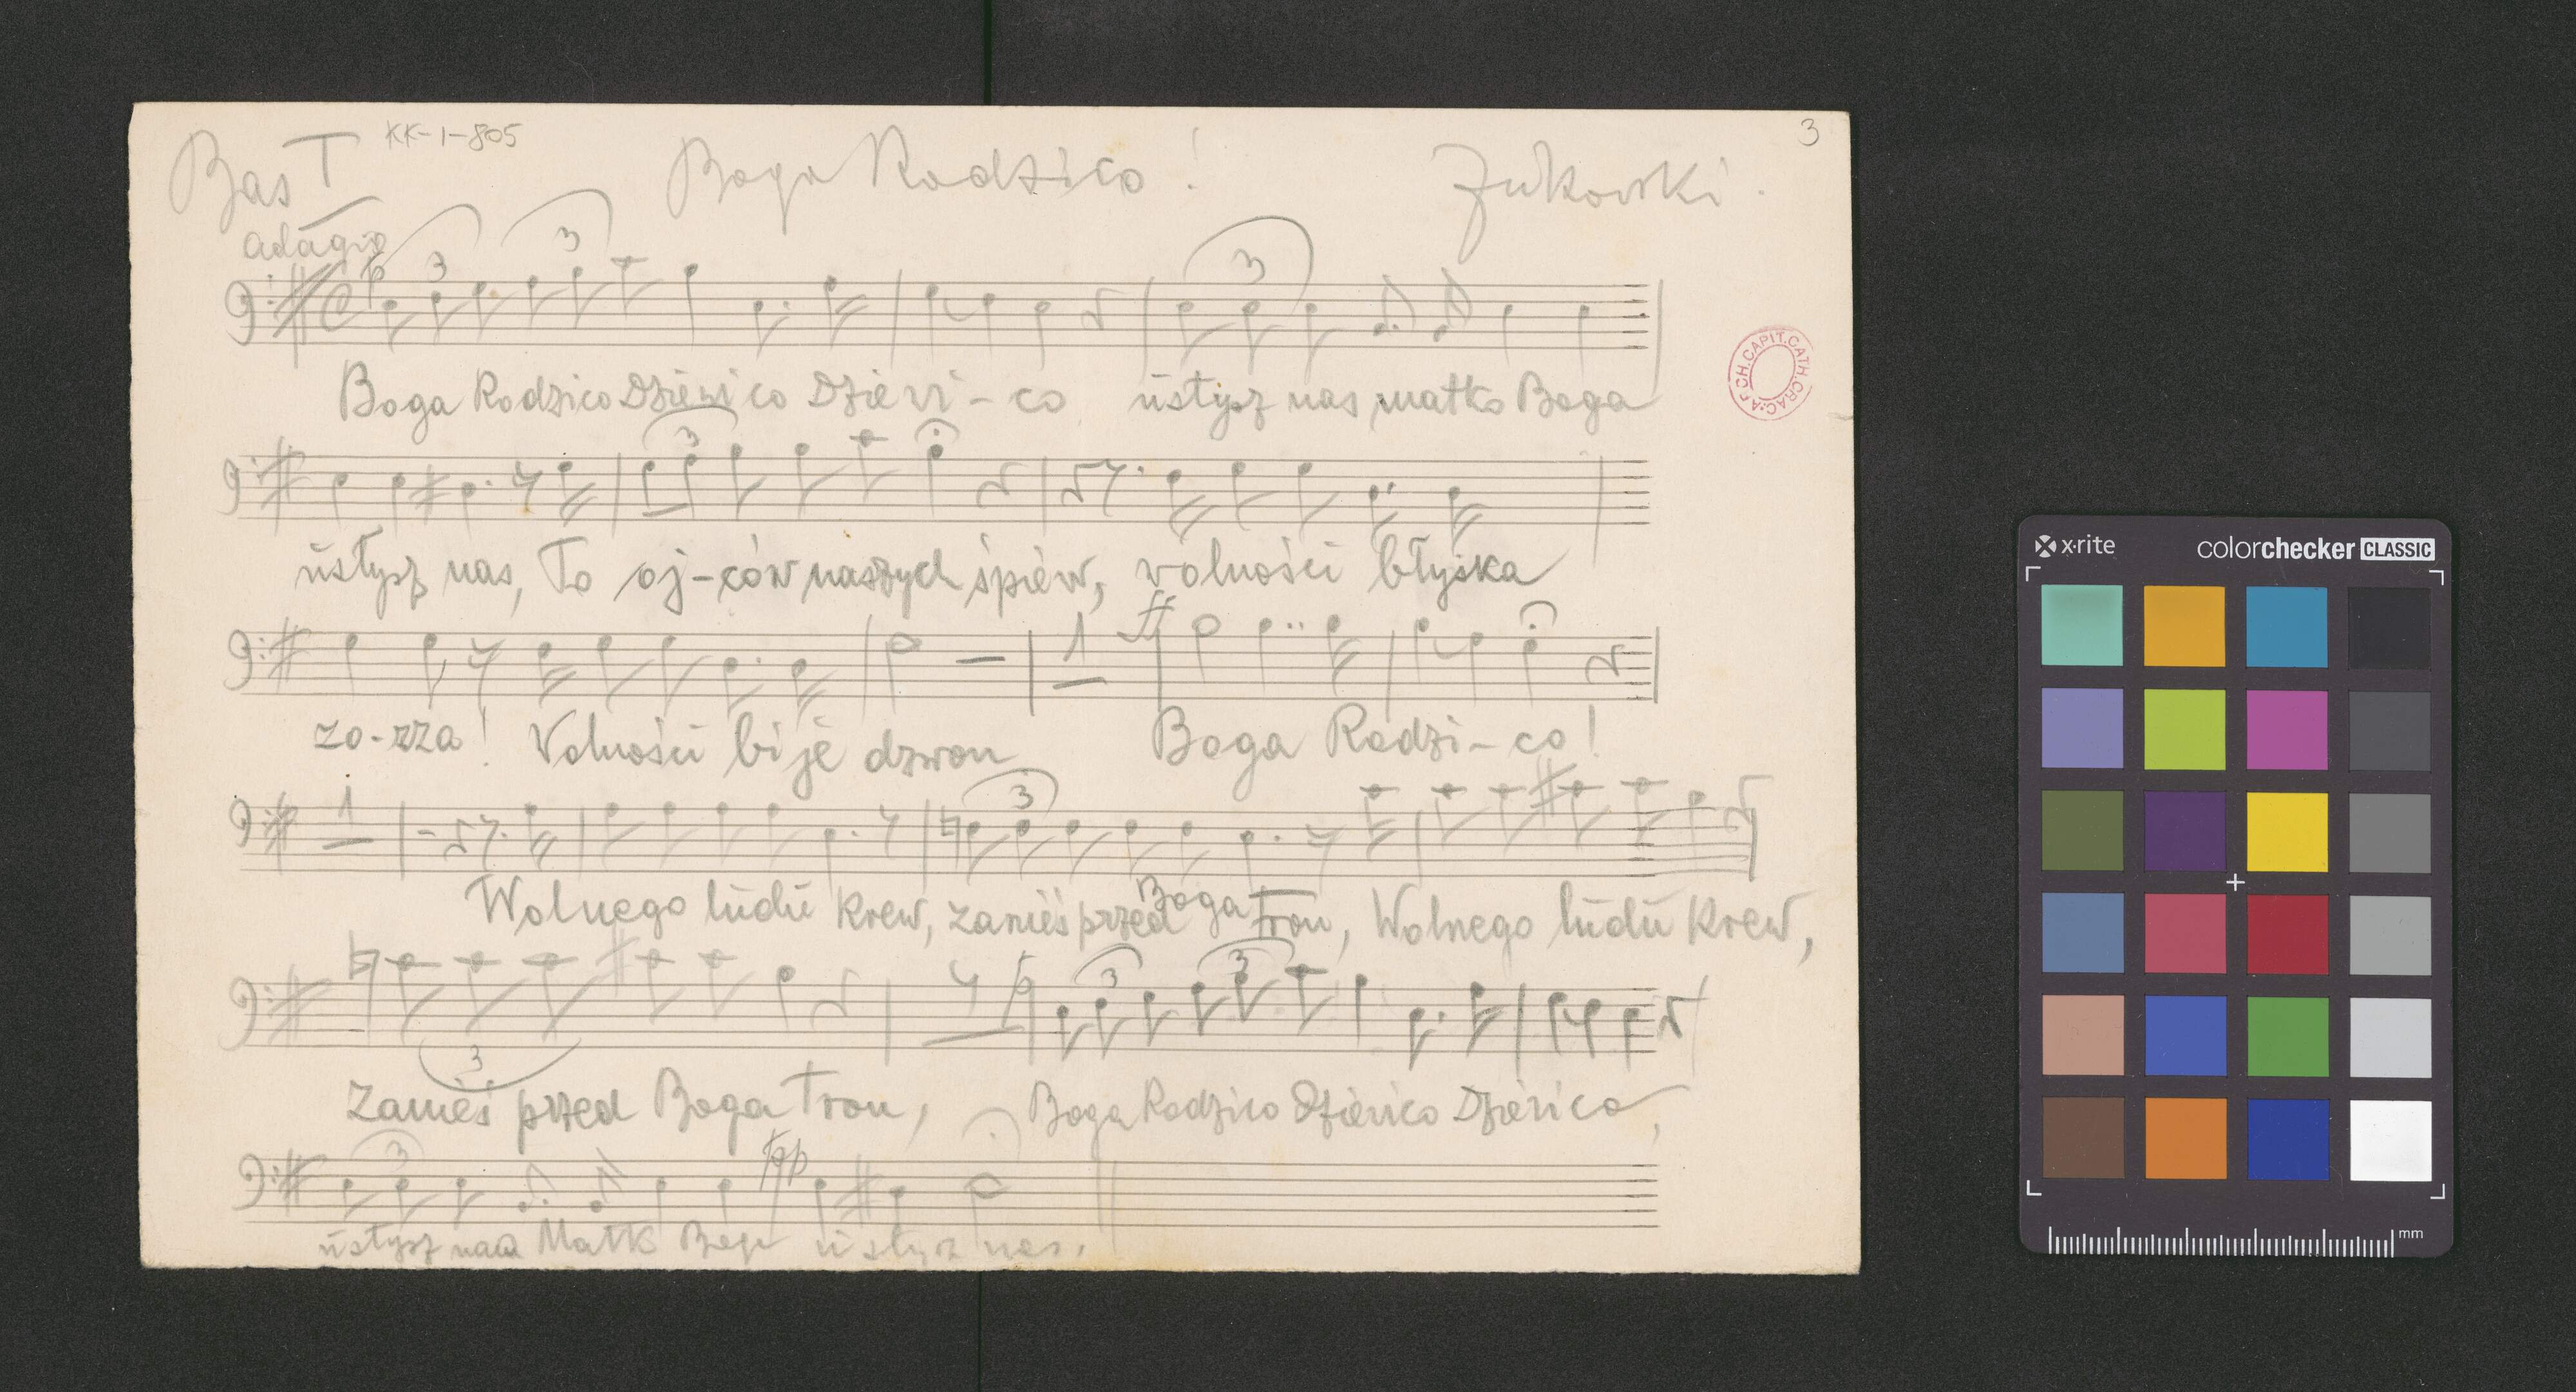 KK-1-805
3
Bas I Boga Rodzico! Żukowski.
adagio
p 3 3 3
Boga Rodzico Dziewico Dziewi-co usłysz nas matko Boga
3
usłysz nas, To oj-ców naszych śpiew, wolności błyska
1 ff
zo-rza! Wolności bije dzwon Boga Rodzi-co!
1 3
Wolnego ludu krew, zanieś przed Boga Tron, Wolnego ludu krew,
3 3 3
Zanieś przed Boga Tron, Boga Rodzico Dziewico Dziewico,
3 pp
usłysz nas Matk Boga usłysz nas.
ARCH.CAPIT.CATH.CRAC.
x·rite colorchecker CLASSIC
mm